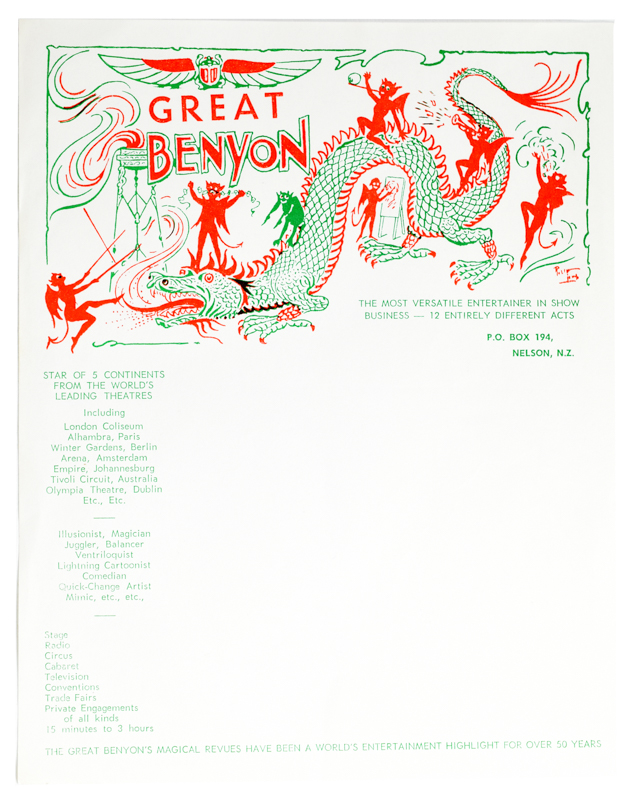 GREAT
BENYON
THE MOST VERSATILE ENTERTAINER IN SHOW
BUSINESS — 12 ENTIRELY DIFFERENT ACTS
P.O. BOX 194,
NELSON, N.Z.
STAR OF 5 CONTINENTS
FROM THE WORLD'S
LEADING THEATRES
Including
London Coliseum
Alhambra, Paris
Winter Gardens, Berlin
Arena, Amsterdam
Empire, Johannesburg
Tivoli Circuit, Australia
Olympia Theatre, Dublin
Etc., Etc.
Illusionist, Magician
Juggler, Balancer
Ventriloquist
Lightning Cartoonist
Comedian
Quick-Change Artist
Mimic, etc., etc.,
Stage
Radio
Circus
Cabaret
Television
Conventions
Trade Fairs
Private Engagements
of all kinds
15 minutes to 3 hours
THE GREAT BENYON'S MAGICAL REVUES HAVE BEEN A WORLD'S ENTERTAINMENT HIGHLIGHT FOR OVER 50 YEARS